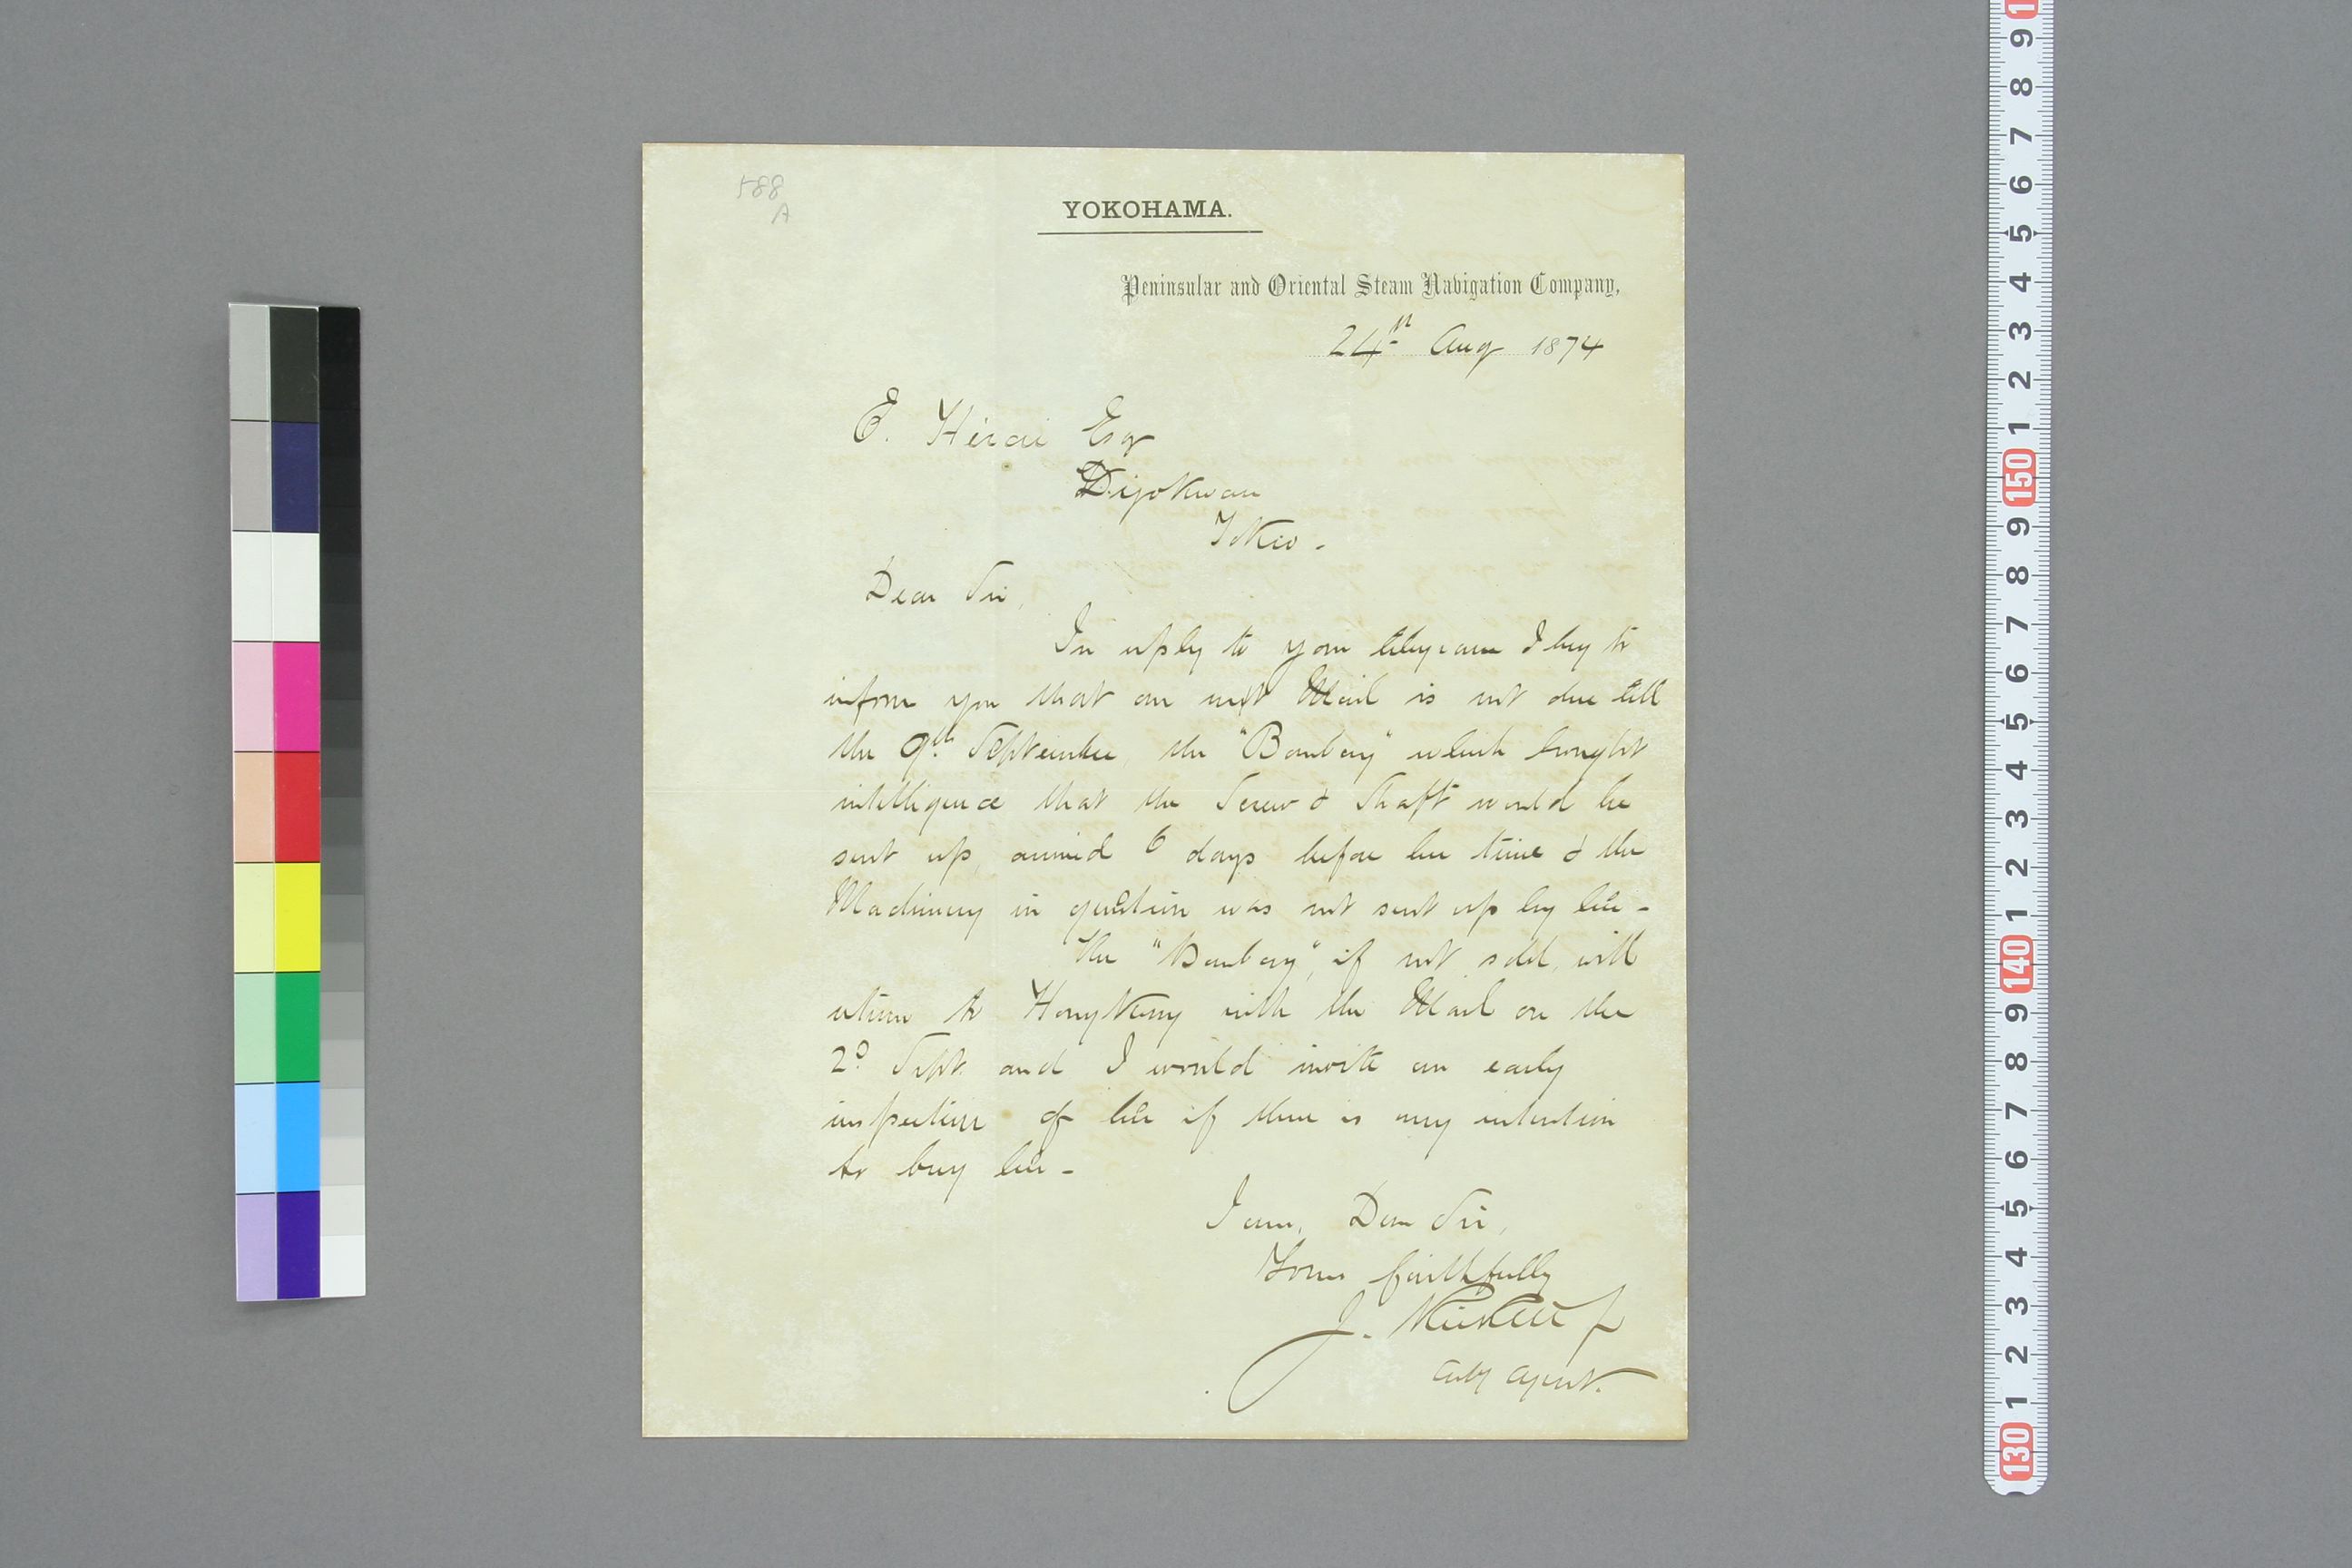 588
A
YOKOHAMA.
Peninsular and Oriental Steam Navigation Company,
24th Aug 1874
E. Hirai Esq
Dijokwan
Tokio -
Dear Sir,
In reply to your telegram I beg to
inform you that our next Mail is not due till
the 9th September, the "Bombay" which brought
intelligence that the Screw & Shaft would be
sent up, arrived 6 days before her time & the
Machinery in question was not sent up by her -
The "Bombay", if not sold, will
return to HongKong with the Mail on the
2d Sept. and I would invite an early
inspection of her if there is any intention
to buy her -
I am, Dear Sir,
Yours faithfully
J.
Actg Agent.
9
8
7
6
5
4
3
2
1
150
9
8
7
6
5
4
3
2
1
140
9
8
7
6
5
4
3
2
1
130